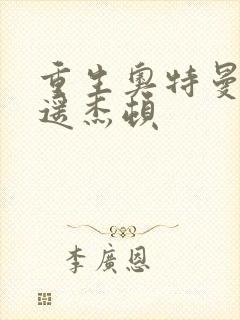 重生奥特曼
遥杰顿
李廣恩